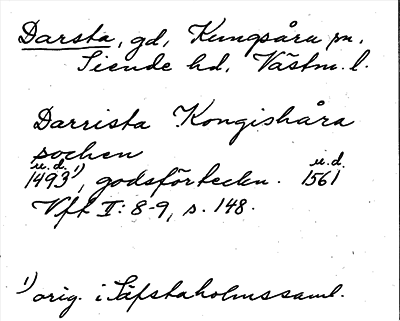 Darsta, gd, Kungsåra sn,
Siende hd, Västm. l.
Darrista Kongishåra
sochen
u.d. u.d.
1493¹⁾, godsförteckn. 1561
Vft II: 8-9, s. 148.
¹⁾ orig. i Säfstaholmssaml.